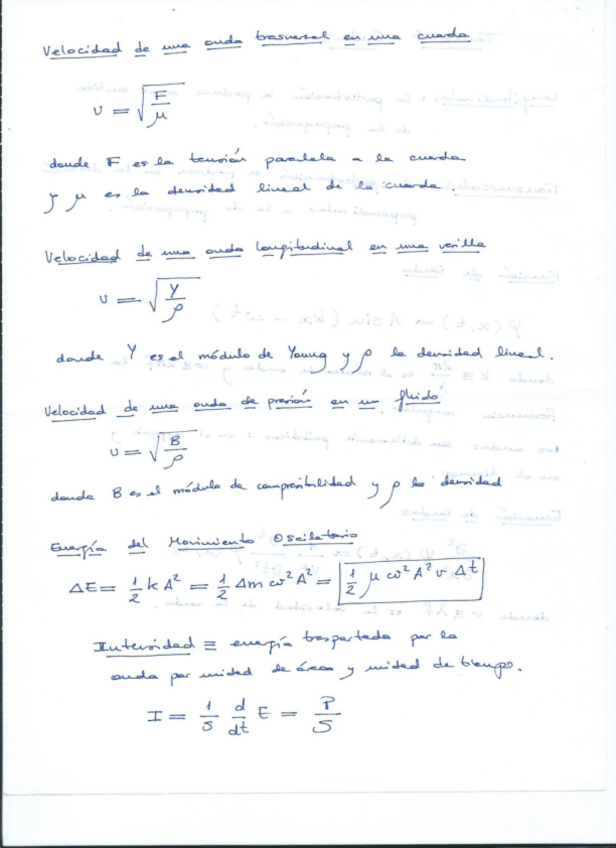 Velocidad de una onda trasversal en una cuerda
v = √(F/μ)
donde F es la tensión paralela a la cuerda
y μ es la densidad lineal de la cuerda.
Velocidad de una onda longitudinal en una varilla
v = √(Y/ρ)
donde Y es el módulo de Young y ρ la densidad lineal.
Velocidad de una onda de presión en un fluido
v = √(B/ρ)
donde B es el módulo de compresibilidad y ρ la densidad
Energía del Movimiento Oscilatorio
ΔE = 1/2 k A² = 1/2 Δm ω² A² = 1/2 μ ω² A² v Δt
Intensidad ≡ energía trasportada por la
onda por unidad de área y unidad de tiempo.
I = 1/S d/dt E = P/S